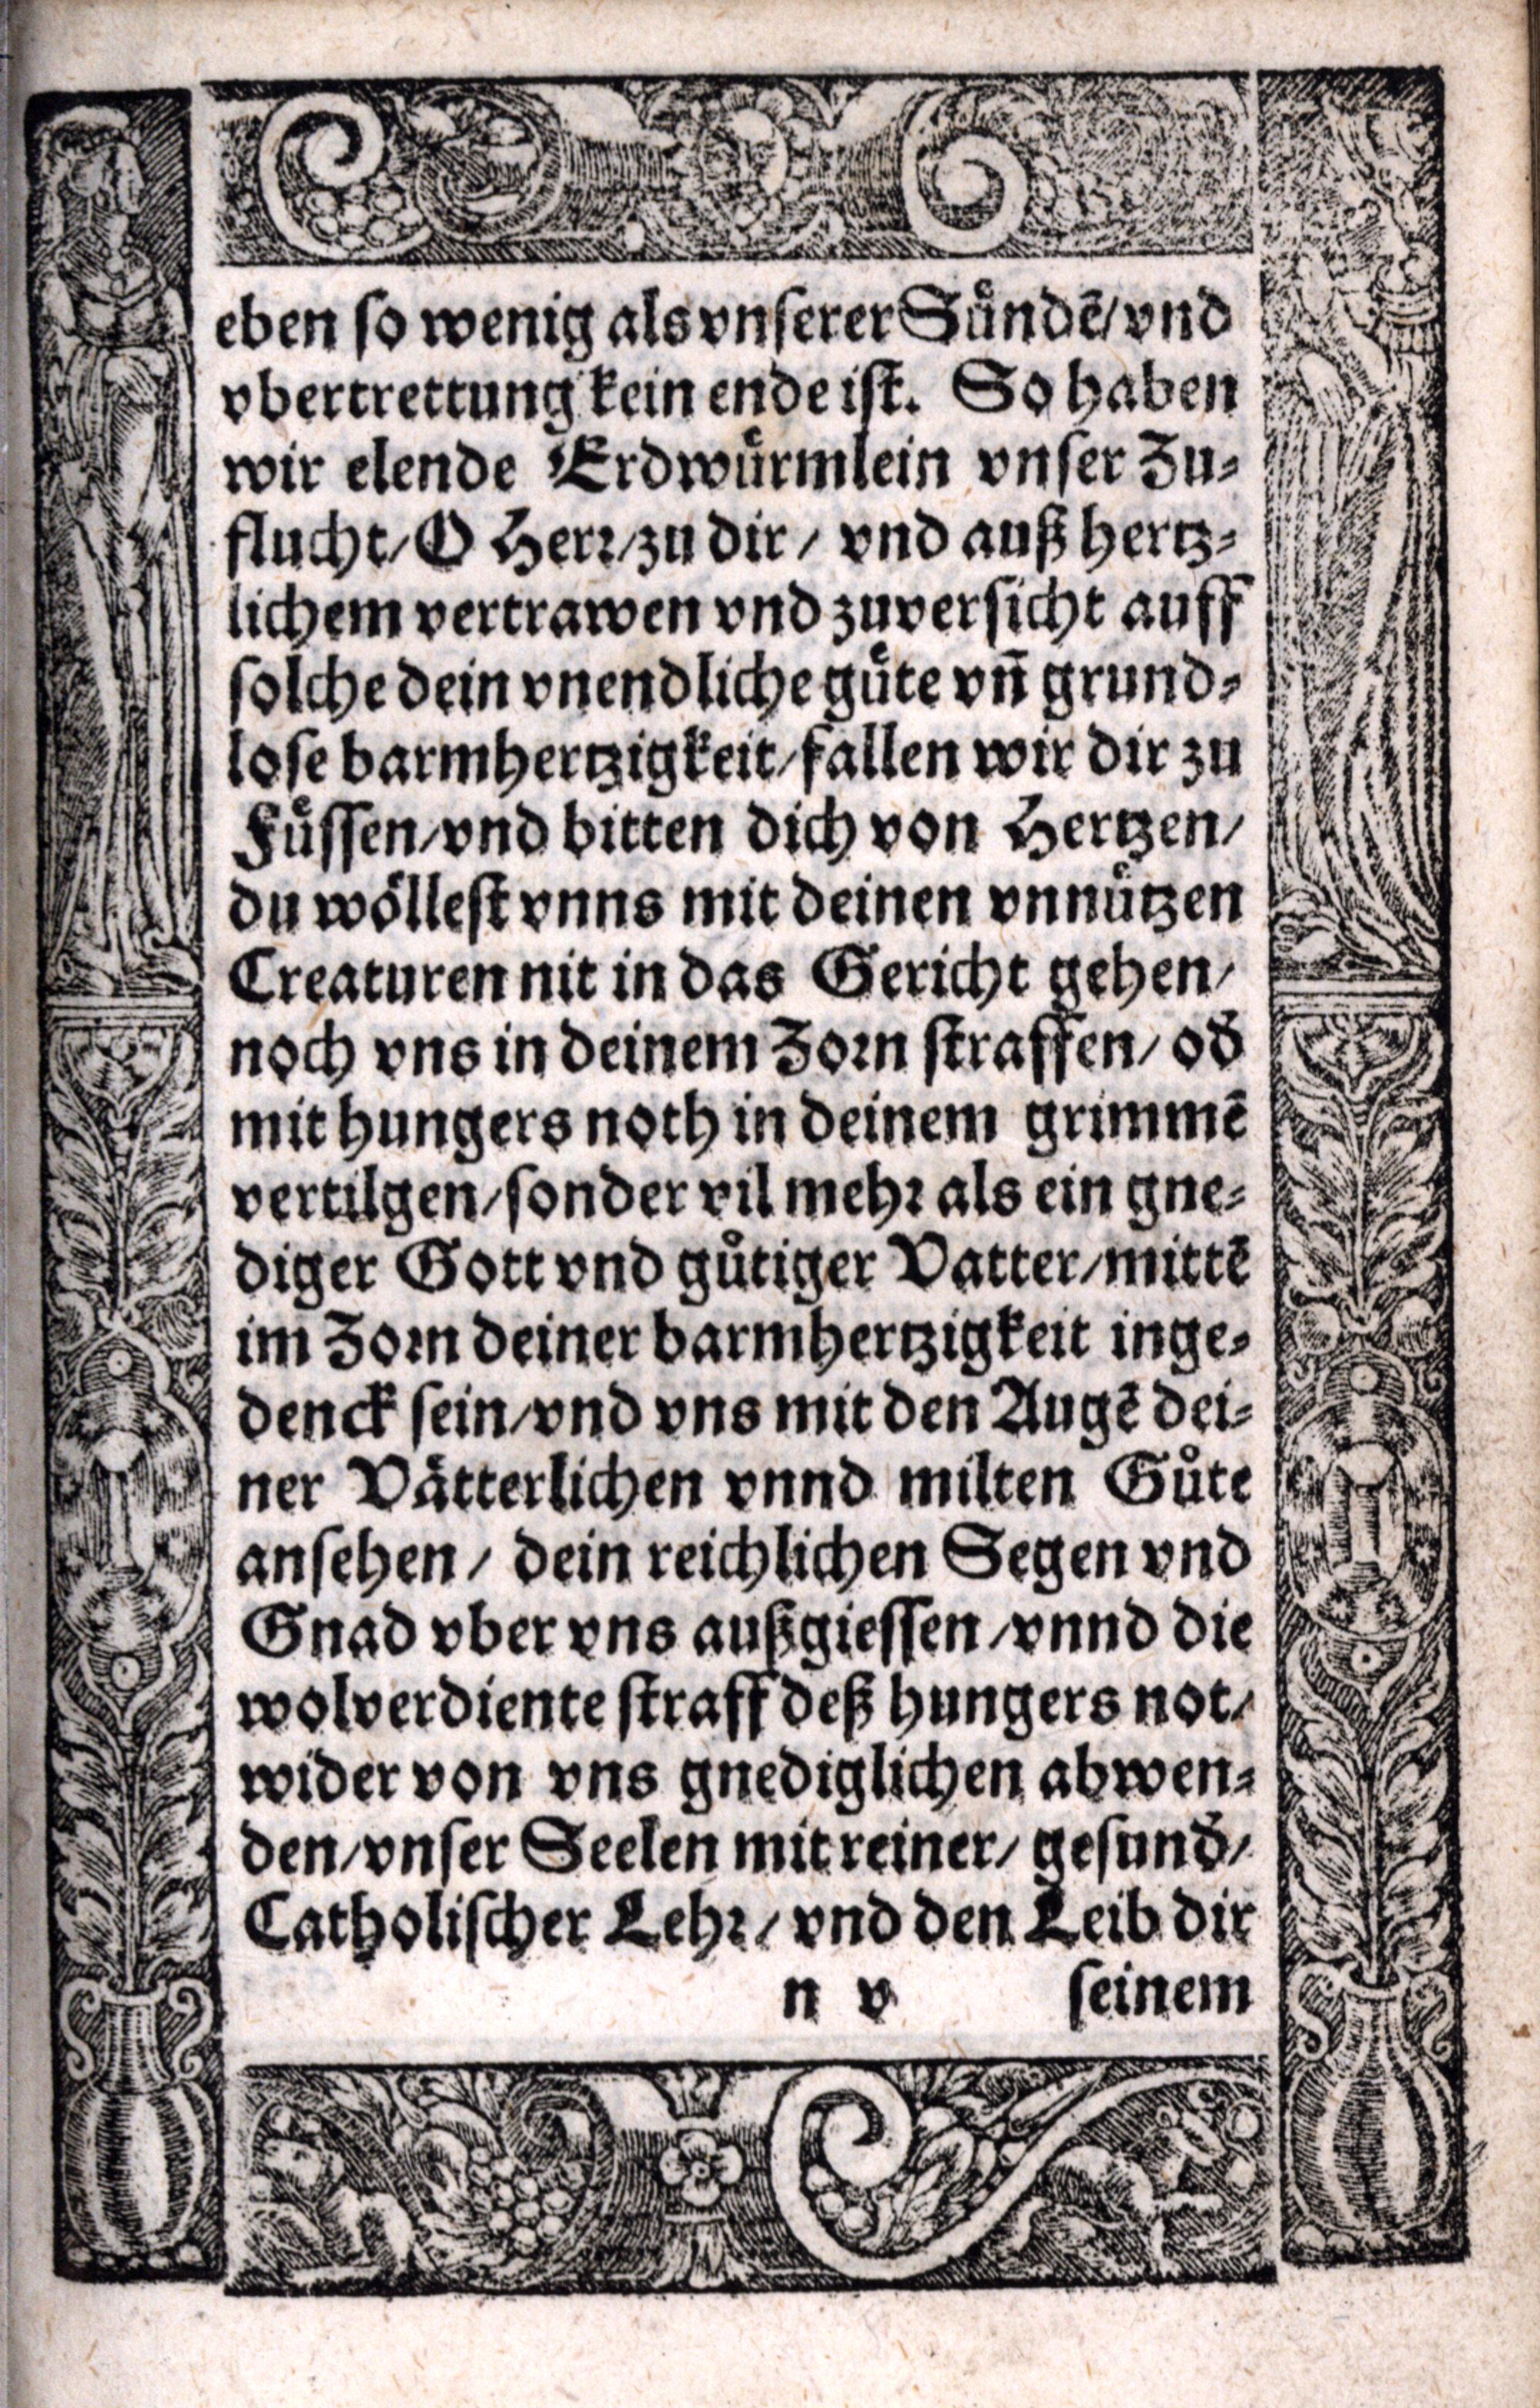 eben so wenig als vnserer Suͤndē/ vnd
vbertrettung kein ende ist. So haben
wir elende Erdwuͤrmlein vnser Zu⸗
flucht/ O Herr/ zu dir / vnd auß hertz⸗
lichem vertrawen vnd zuversicht auff
solche dein vnendliche guͤte vn̄ grund⸗
lose barmhertzigkeit/ fallen wir dir zu
Fuͤssen/ vnd bitten dich von Hertzen/
du woͤllest vnns mit deinen vnnuͤtzen
Creaturen nit in das Gericht gehen/
noch vns in deinem Zorn straffen/ od̄
mit hungers noth in deinem grimmē
vertilgen/ sonder vil mehr als ein gne⸗
diger Gott vnd guͤtiger Vatter/ mittē
im Zorn deiner barmhertzigkeit inge⸗
denck sein/ vnd vns mit den Augē dei⸗
ner Vaͤtterlichen vnnd milten Guͤte
ansehen / dein reichlichen Segen vnd
Gnad vber vns außgiessen / vnnd die
wolverdiente straff deß hungers not/
wider von vns gnediglichen abwen⸗
den/ vnser Seelen mit reiner/ gesund̄/
Catholischer Lehr / vnd den Leib dir
n v seinem